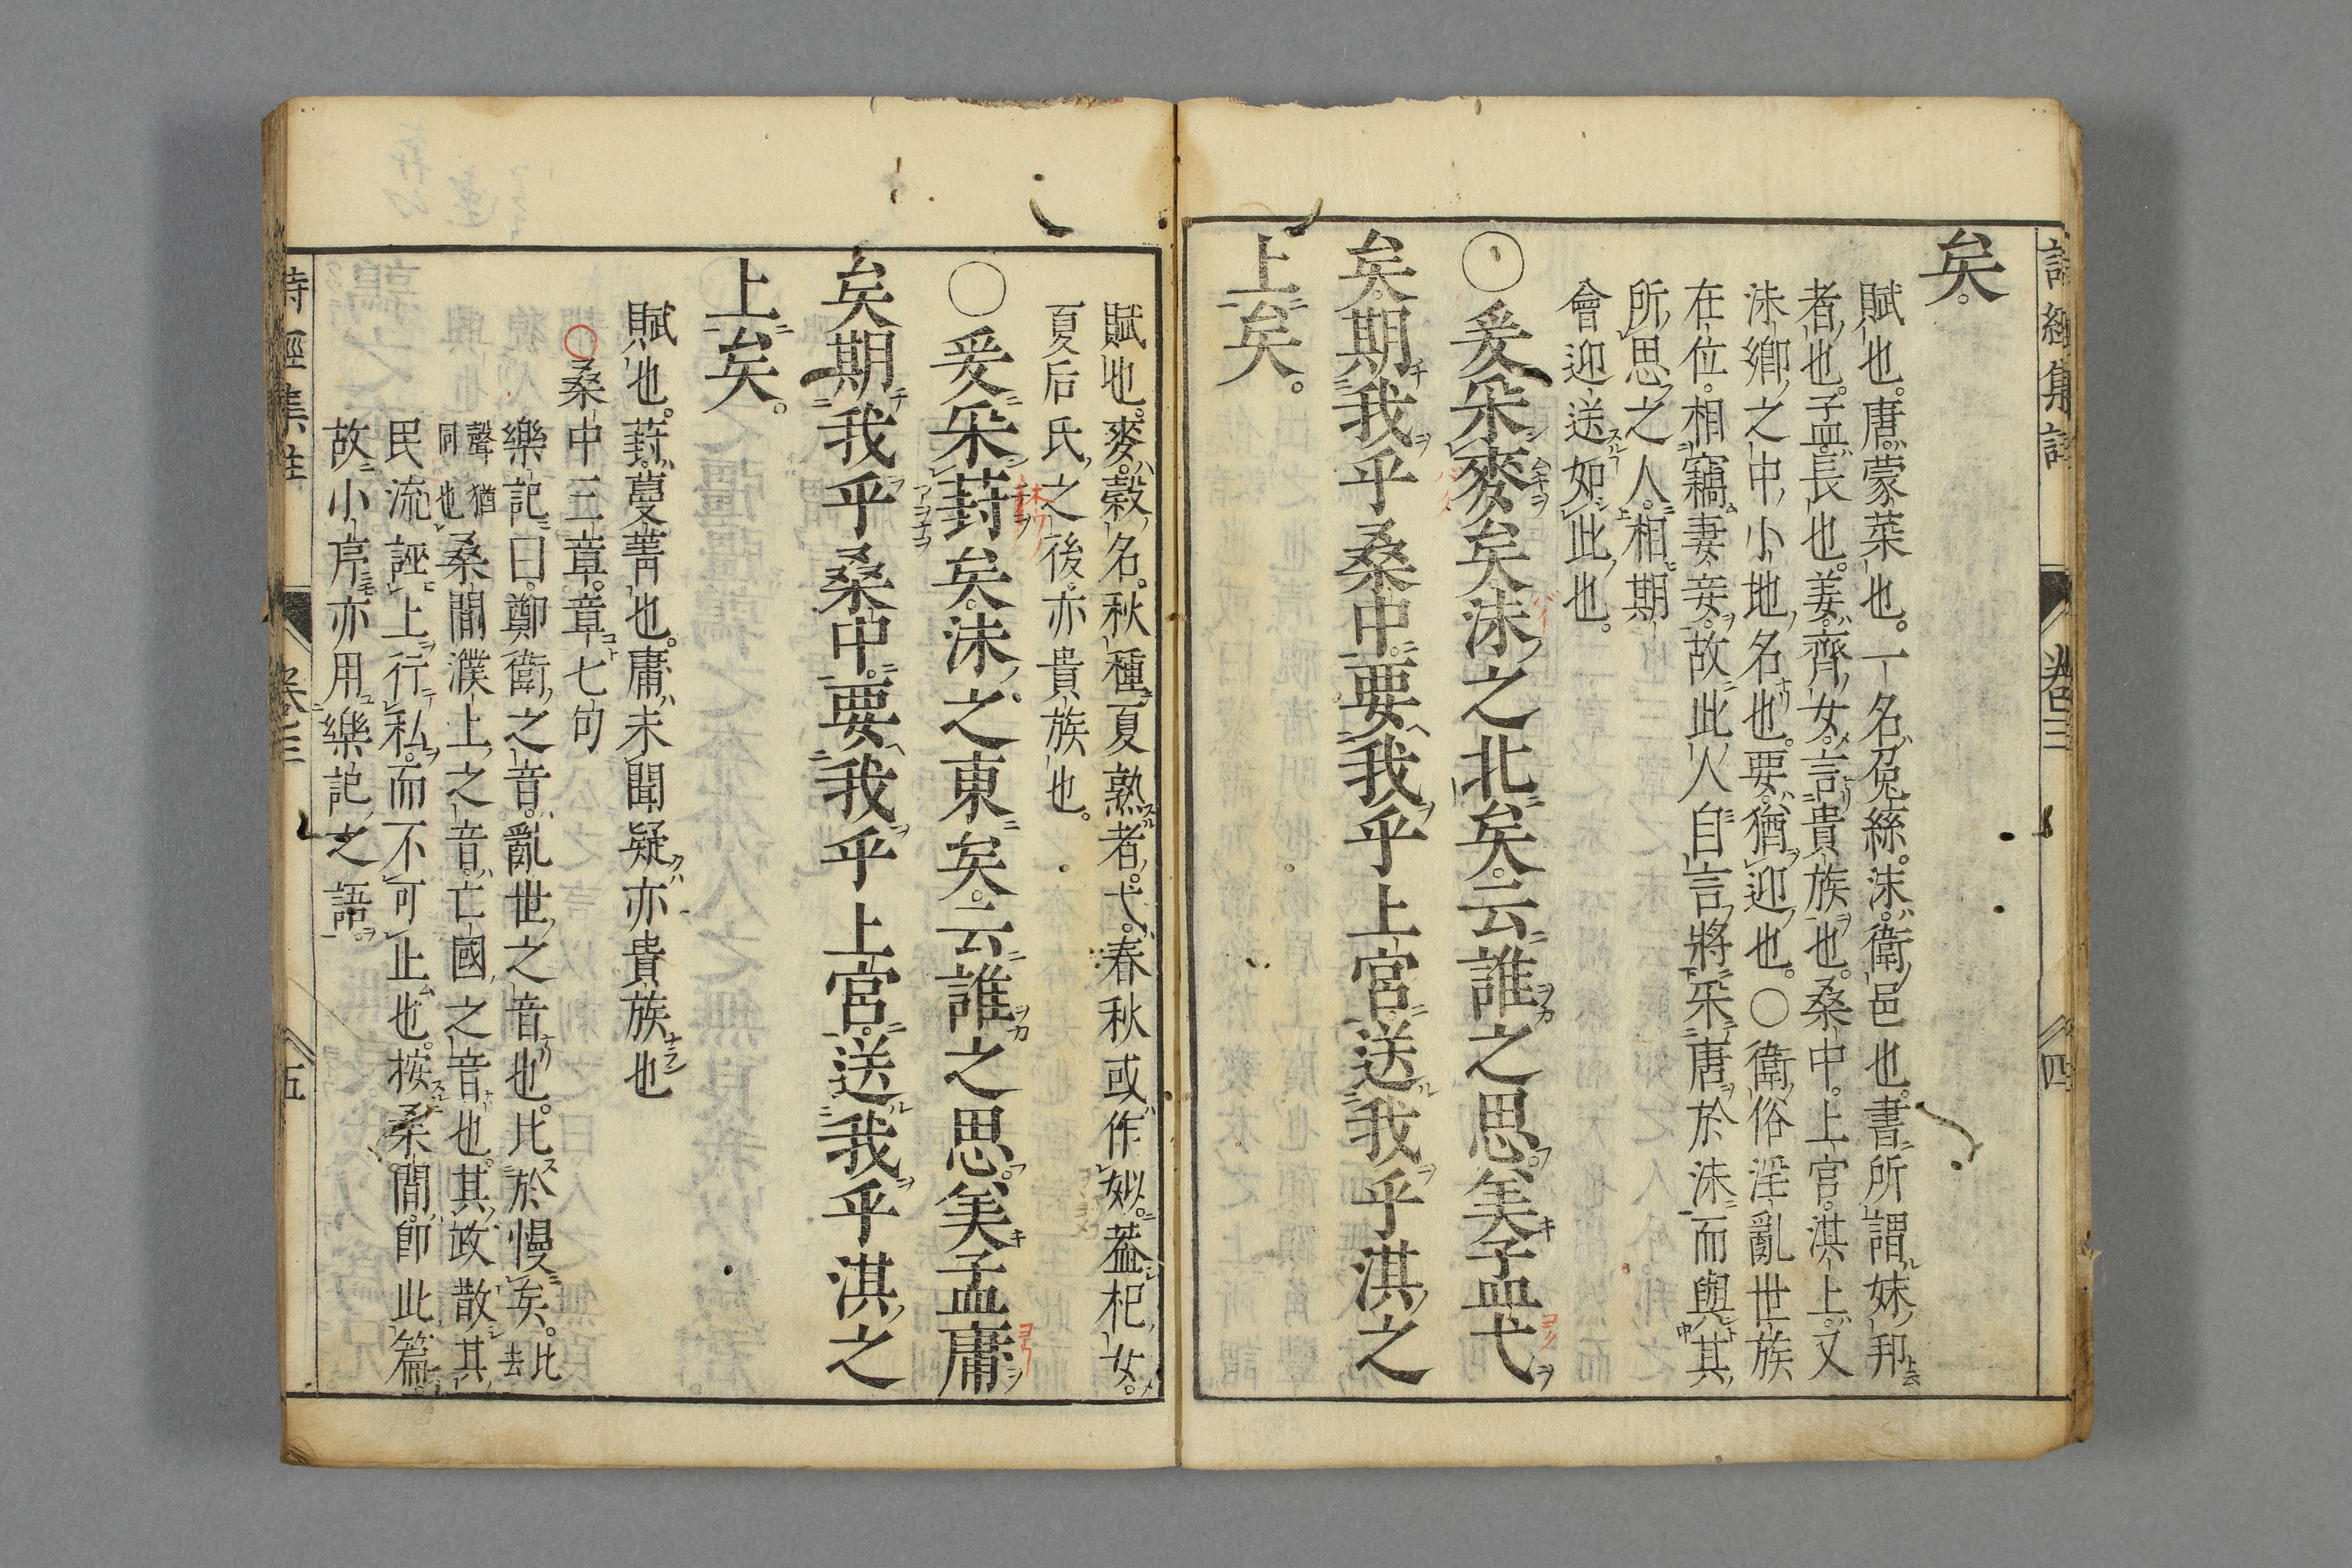 詩經集註 卷三 四
矣。
賦也。唐、蒙菜也。一名兔絲。沬。衛邑也。書所謂妹邦
者也。孟、長也。姜。齊女。言貴族也。桑中。上官。淇上。又
沬鄉之中小地名也。要。猶迎也。○衛俗淫亂世族
在位。相竊妻妾。故此人自言將采唐於沬而與其
所思之人。相期
會迎送如此也。
○爰采麥矣。沬之北矣。云誰之思。美孟弋
矣。期我乎桑中。要我乎上宮。送我乎淇之
上矣。
賦也。麥。穀名。秋種夏熟者。弋。春秋或作姒。蓋杞女。
夏后氏之後。亦貴族也。
○爰采葑矣。沬之東矣。云誰之思。美孟庸
矣期我乎桑中。要我乎上宮。送我乎淇之
上矣。
賦也。葑。蔓菁也。庸。未聞疑亦貴族也
○桑中三章。章七句
樂記曰。鄭衛之音。亂世之音也。比於慢矣。比去
聲猶同也桑間濮上之音。亡國之音也。其政散。其
民流。誣上行私。而不可止也。按桑間。卽此篇。
故小序亦用樂記之語。
詩經集註 卷三 五